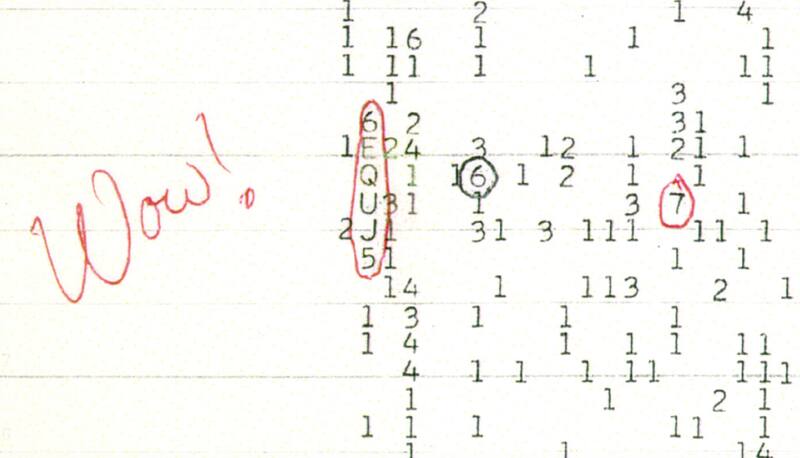 1 2 1 4
1 16 1 1 1
1 11 1 1 11
1 3 1
6 2 31
1E24 3 12 1 21 1
Q 1 16 1 2 1 1
Wow!
U31 1 3 7 1
2J1 31 3 111 11 1
51 1 1
14 1 113 2 1
1 3 1 1 1
1 4 1 1 1 11
4 1 1 1 11 111
1 1 2 1
1 1 1 11 1
1 1 14